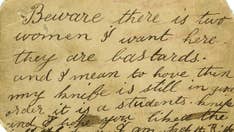 Beware there is two
women I want here
they are bastards.
and I mean to have them
my knife is still in
order it is a students knife
and I hope you liked the